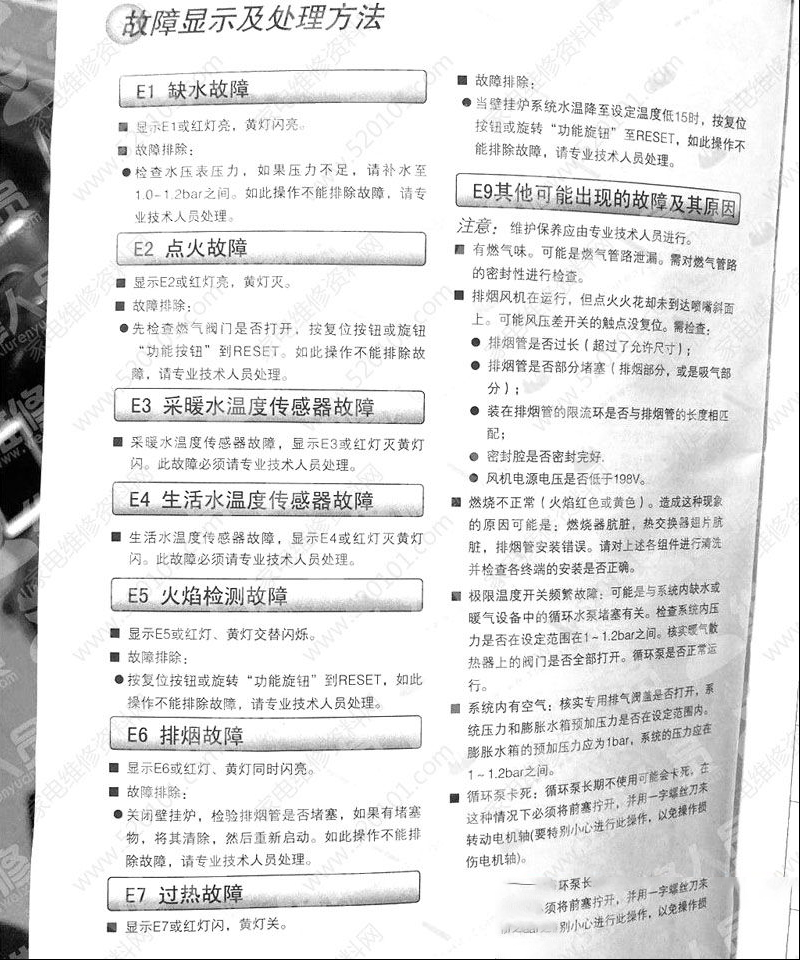 故障显示及处理方法
E1 缺水故障
■ 显示E1或红灯亮，黄灯闪亮。
■ 故障排除：
●检查水压表压力，如果压力不足，请补水至
1.0~1.2bar之间。如此操作不能排除故障，请专
业技术人员处理。
E2 点火故障
■ 显示E2或红灯亮，黄灯灭。
■ 故障排除：
●先检查燃气阀门是否打开，按复位按钮或旋钮
“功能按钮”到RESET。如此操作不能排除故
障，请专业技术人员处理。
E3 采暖水温度传感器故障
■ 采暖水温度传感器故障，显示E3或红灯灭黄灯
闪。此故障必须请专业技术人员处理。
E4 生活水温度传感器故障
■ 生活水温度传感器故障，显示E4或红灯灭黄灯
闪。此故障必须请专业技术人员处理。
E5 火焰检测故障
■ 显示E5或红灯、黄灯交替闪烁。
■ 故障排除：
●按复位按钮或旋转“功能旋钮”到RESET，如此
操作不能排除故障，请专业技术人员处理。
E6 排烟故障
■ 显示E6或红灯、黄灯同时闪亮。
■ 故障排除：
●关闭壁挂炉，检验排烟管是否堵塞，如果有堵塞
物，将其清除，然后重新启动。如此操作不能排
除故障，请专业技术人员处理。
E7 过热故障
■ 显示E7或红灯闪，黄灯关。
■ 故障排除：
●当壁挂炉系统水温降至设定温度低15时，按复位
按钮或旋转“功能旋钮”至RESET，如此操作不
能排除故障，请专业技术人员处理。
E9其他可能出现的故障及其原因
注意：维护保养应由专业技术人员进行。
■ 有燃气味。可能是燃气管路泄漏。需对燃气管路
的密封性进行检查。
■ 排烟风机在运行，但点火火花却未到达喷嘴斜面
上。可能风压差开关的触点没复位。需检查：
● 排烟管是否过长（超过了允许尺寸）；
● 排烟管是否部分堵塞（排烟部分，或是吸气部
分）；
● 装在排烟管的限流环是否与排烟管的长度相匹
配；
● 密封腔是否密封完好.
● 风机电源电压是否低于198V。
■ 燃烧不正常（火焰红色或黄色）。造成这种现象
的原因可能是：燃烧器肮脏，热交换器翅片肮
脏，排烟管安装错误。请对上述各组件进行清洗
并检查各终端的安装是否正确。
■ 极限温度开关频繁故障：可能是与系统内缺水或
暖气设备中的循环水泵堵塞有关。检查系统内压
力是否在设定范围在1~1.2bar之间。核实暖气散
热器上的阀门是否全部打开。循环泵是否正常运
行。
■ 系统内有空气：核实专用排气阀盖是否打开，系
统压力和膨胀水箱预加压力是否在设定范围内。
膨胀水箱的预加压力应为1bar，系统的压力应在
1~1.2bar之间。
■ 循环泵卡死：循环泵长期不使用可能会卡死，在
这种情况下必须将前塞拧开，并用一字螺丝刀来
转动电机轴(要特别小心进行此操作，以免操作损
伤电机轴)。
环泵长
须将前塞拧开，并用一字螺丝刀来
别小心进行此操作，以免操作损